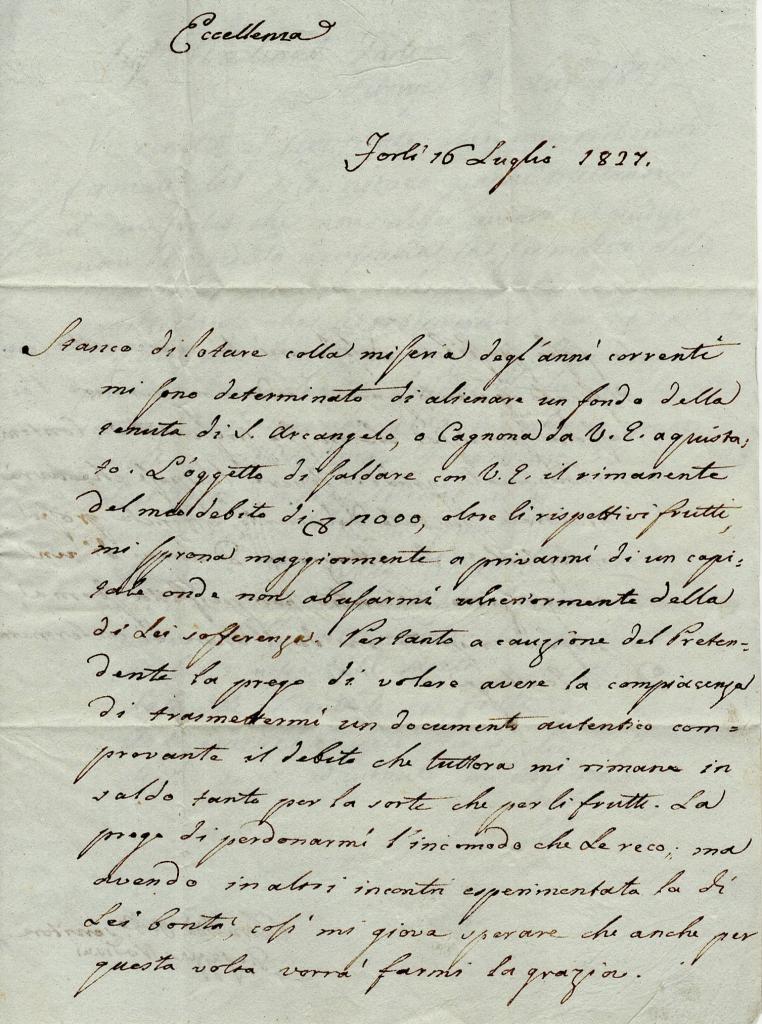 Eccellenza
Forlì 16 Luglio 1827.
Stanco di lotare colla miseria degl'anni correnti
mi sono determinato di alienare un fondo della
tenuta di S. Arcangelo, o Cagnona da V. E. aquista:
to. L'oggetto di saldare con V. E. il rimanente
del meo debito di 12000, oltre li rispettivi frutti,
mi sprona maggiormente a privarmi di un capi:
tale onde non abusarmi ulteriormente della
di Lei sofferenza. Pertanto a cauzione del Preten=
dente la prego di volere avere la compiacenza
di trasmettermi un documento autentico com=
provante il debito che tuttora mi rimane in
saldo tanto per la sorte che per li frutti. La
prego di perdonarmi l'incomodo che Le reco; ma
avendo in altri incontri esperimentata la di
Lei bontà, così mi giova sperare che anche per
questa volta vorrà farmi la grazia.